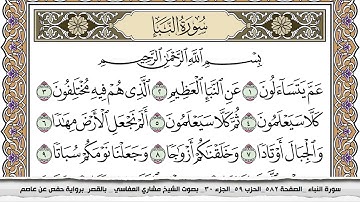 سُورَةُ النَّبَإِ
بِسْمِ اللَّهِ الرَّحْمَٰنِ الرَّحِيمِ
عَمَّ يَتَسَاءَلُونَ ١ عَنِ النَّبَإِ الْعَظِيمِ ٢ الَّذِي هُمْ فِيهِ مُخْتَلِفُونَ ٣
كَلَّا سَيَعْلَمُونَ ٤ ثُمَّ كَلَّا سَيَعْلَمُونَ ٥ أَلَمْ نَجْعَلِ الْأَرْضَ مِهَادًا ٦
وَالْجِبَالَ أَوْتَادًا ٧ وَخَلَقْنَاكُمْ أَزْوَاجًا ٨ وَجَعَلْنَا نَوْمَكُمْ سُبَاتًا ٩
سورة النباء . الصفحة ٥٨٢ . الحزب ٥٩ . الجزء ٣٠ . بصوت الشيخ مشاري العفاسي . بالقصر برواية حفص عن عاصم